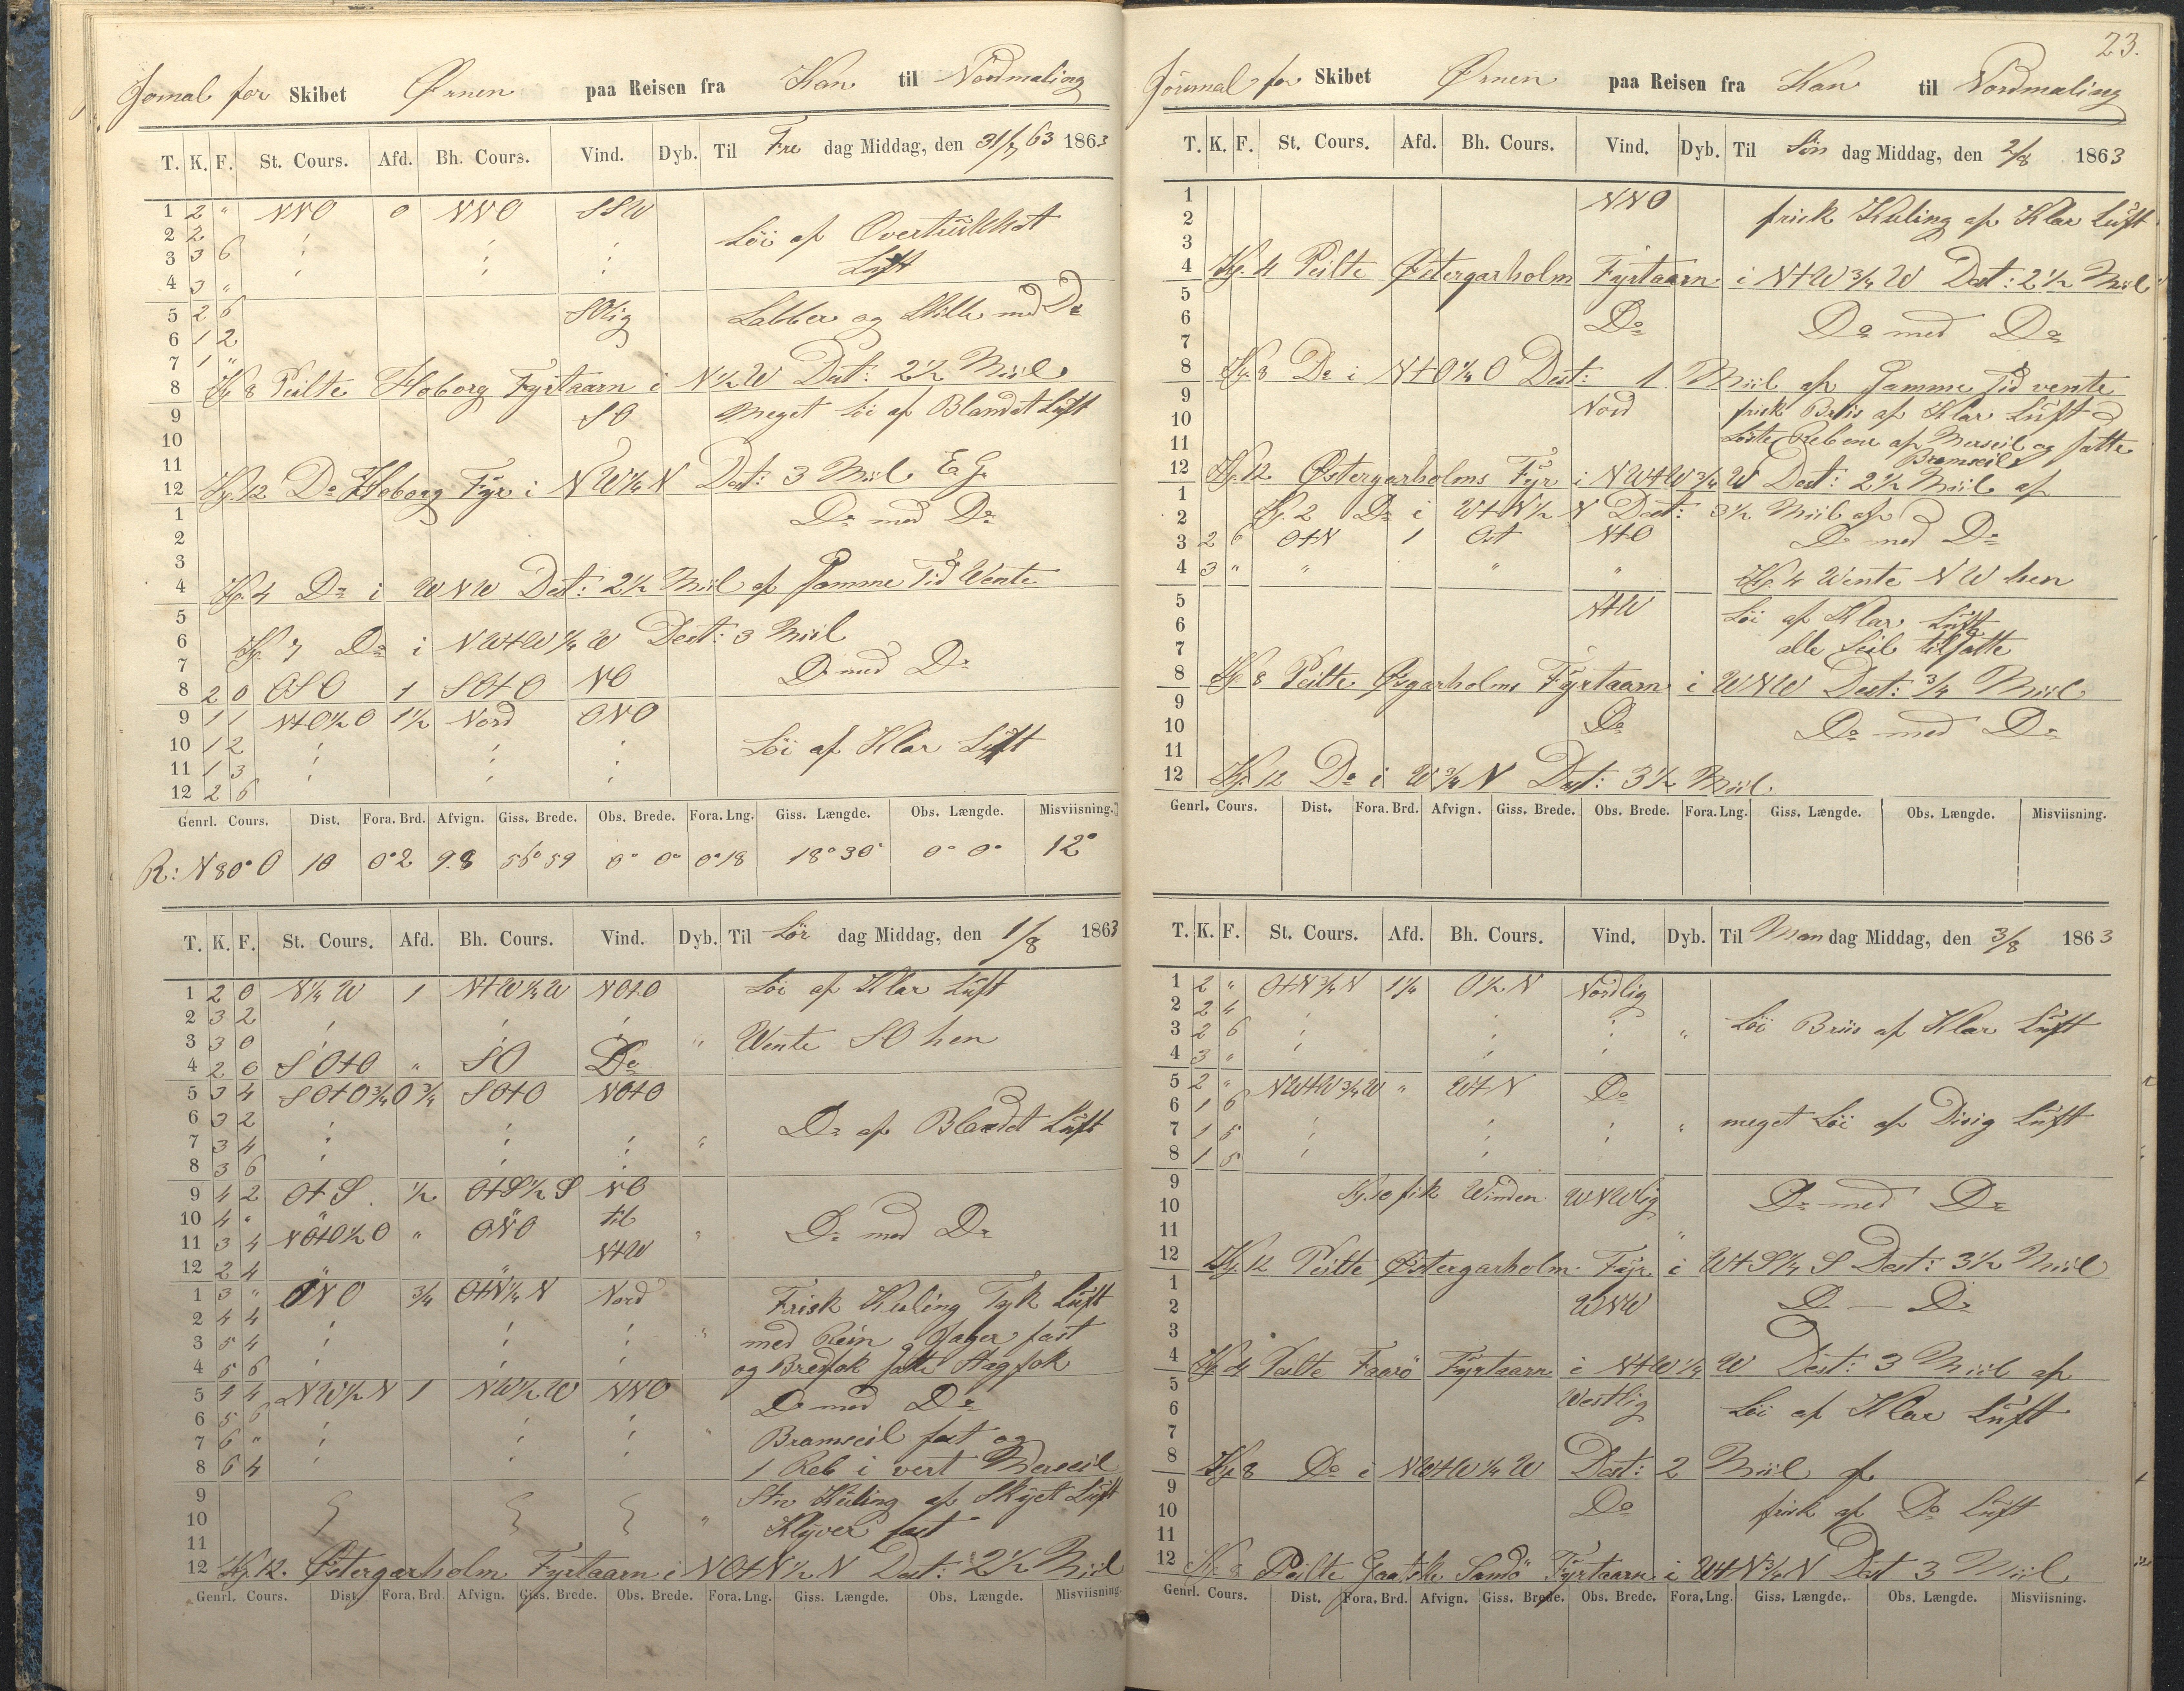 Jornal for Skibet Ørnen paa Reisen fra Kan til Nordmaling
T. K. F. St. Cours. Afd. Bh. Cours. Vind. Dyb. Til Fre dag Middag, den 31/7 63 1863
1 2 " NNO 0 NNO SSW
2 2 Löi af Overtrükket
3 3 6 Lüft
4 3 "
5 2 6 SOlig Labber og Stille med Do
6 1 2
7 1 "
8 Kl. 8 Peilte Hoborg Fyrtaarn i N 1/2 W Dest: 2 1/2 Miil
9 SO meget löi af Blandet Lüft
10
11
12 Kl. 12 Do Hoborg Fyr i NW 1/4 N Dest: 3 Miil
1 Do med Do
2
3
4 Kl. 4 Do i WNW Dest: 2 1/2 Miil af Samme Tid Wente
5
6 Kl. 7 Do i NWtW 1/4 W Dest: 3 Miil
7 Do med Do
8 2 0 OSO 1 SOtO NO
9 1 1 NtO 1/2 O 1 1/2 Nord ONO
10 1 2 Löi af Klar Lüft
11 1 3
12 2 6
Genrl. Cours. Dist. Fora. Brd. Afvign. Giss. Brede. Obs. Brede. Fora. Lng. Giss. Længde. Obs. Længde. Misviisning.
R: N 80° O 10 0° 2 9.8 56° 59 0° 0° 0° 18 18° 30 0° 0° 12°
T. K. F. St. Cours. Afd. Bh. Cours. Vind. Dyb. Til Lör dag Middag, den 1/8 1863
1 2 0 N 1/4 W 1 NtW 1/4 W NOtO Löi af Klar Lüft
2 3 2
3 3 0 " Wente SO hen
4 2 0 SOtO " SO Do
5 3 4 SOtO 3/4 O 3/4 SOtO NOtO
6 3 2 Do af Blandet Lüft
7 3 4 "
8 3 6
9 4 2 OtS 1/2 OtS 1/2 S NO
10 4 " " til Do med Do
11 3 4 NOtO 1/2 O " ONO "
12 2 4 " NtW
1 3 " ONO 3/4 OtN 1/4 N Nord Frisk Kuling Tyk Lüft
2 4 4 med Rein Jager fast
3 5 4 og Bredfok satte Stagfok
4 5 6
5 4 4 NW 1/2 N 1 NW 1/2 W NNO Do med Do
6 5 6
7 6 " Bramseil fast og
8 6 4 1 Reb i vert Merseil
9 Stiv Küling af Skyet Lüft
10 " Klyver fast
11
12 Kl. 12. Östergarholm Fyrtaarn i NOtN 1/2 N Dest: 2 1/2 Miil
Genrl. Cours. Dist. Fora. Brd. Afvign. Giss. Brede. Obs. Brede. Fora. Lng. Giss. Længde. Obs. Længde. Misviisning.
23.
Journal for Skibet Ørnen paa Reisen fra Kan til Nordmaling
T. K. F. St. Cours. Afd. Bh. Cours. Vind. Dyb. Til Sön dag Middag, den 2/8 1863
1 NNO frisk Kuling af Klar Lüft
2
3
4 Kl. 4 Peilte Østergarholm Fyrtaarn i NtW 3/4 W Dest: 2 1/2 Miil
5
6 Do Do med Do
7
8 Kl. 8 Do i NtO 1/4 O Dest: 1 Miil af Samme Tid vente
9 Nord frisk Briis af Klar Lüft
10 Löste Rebene af Merseil og satte
11 Bramseil
12 Kl. 12 Østergarholms Fyr i NWtW 3/4 W Dest: 2 1/2 Miil af
1 Kl. 2 Do i WtN 1/2 N Dest: 3 1/2 Miil af
2
3 2 6 OtN 1 Ost NtO Do med Do
4 3 " " " " Kl. 4 Wente NW hen
5 NtW Löi af Klar Lüft
6 alle Seil tilsatte
7
8 Kl. 8 Peilte Øsgarholms Fyrtaarn i WNW Dest: 3/4 Miil
9
10 Do Do med Do
11
12 Kl. 12 Do i W 3/4 N Dest: 3 1/2 Miil
Genrl. Cours. Dist. Fora. Brd. Afvign. Giss. Brede. Obs. Brede. Fora. Lng. Giss. Længde. Obs. Længde. Misviisning.
T. K. F. St. Cours. Afd. Bh. Cours. Vind. Dyb. Til Man dag Middag, den 3/8 1863
1 2 " OtN 3/4 N 1 1/4 O 1/2 N Nordlig
2 2 4
3 2 6 " Löi Briis af Klar Lüft
4 3 "
5 2 " NWtW 3/4 W " WtN Do
6 1 6
7 1 5 " meget Löi af Disig Lüft
8 1 5
9 Kl. 10 fik Winden WNWlig Do med Do
10
11 "
12 Kl. 12 Peilte Østergarholm Fyr i WtS 1/4 S Dest: 3 1/2 Miil
1
2 WNW Do — Do
3
4 Kl. 4 Peilte Faarö Fyrtaarn i NtW 1/4 W Dest: 3 Miil af
5 Westlig
6 Löi af Klar Lüft
7
8 Kl. 8 Do i NWtW 1/4 W Dest: 2 Miil af
9
10 Do frisk af Do Lüft
11
12 Kl. 8 Peilte Gaatske Sandö Fyrtaarn i WtN 3/4 N Dest 3 Miil
Genrl. Cours. Dist. Fora. Brd. Afvign. Giss. Brede. Obs. Brede. Fora. Lng. Giss. Længde. Obs. Længde. Misviisning.